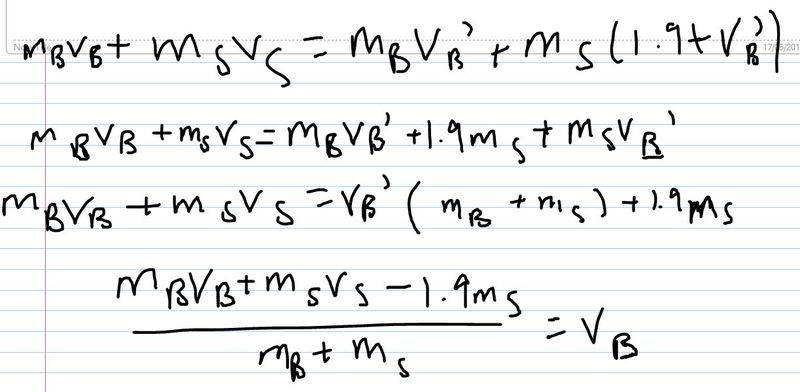 m_B v_B + m_S v_S = m_B v_B' + m_S (1.9 + v_B')
17/05/201
m_B v_B + m_S v_S = m_B v_B' + 1.9 m_S + m_S v_B'
m_B v_B + m_S v_S = v_B' (m_B + m_S) + 1.9 m_S
m_B v_B + m_S v_S - 1.9 m_S
= v_B
m_B + m_S